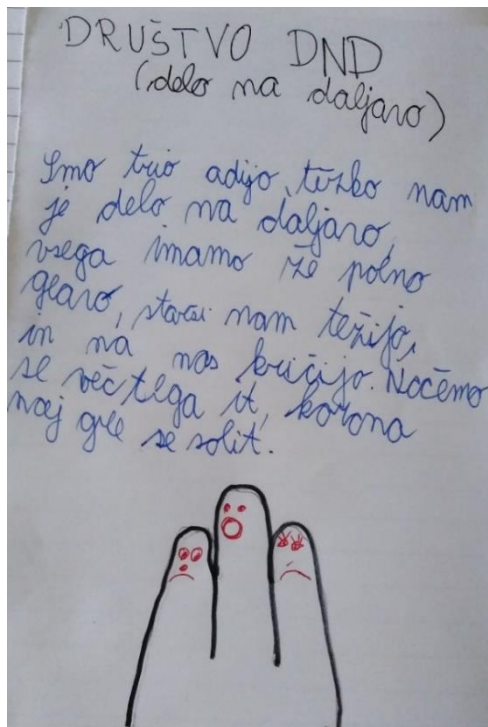 DRUŠTVO DND
(delo na daljavo)
Smo trio adijo, težko nam
je delo na daljavo,
vsega imamo že polno
glavo, starši nam težijo,
in na nas kričijo. Nočemo
se več tega it, korona
naj gre se solit.